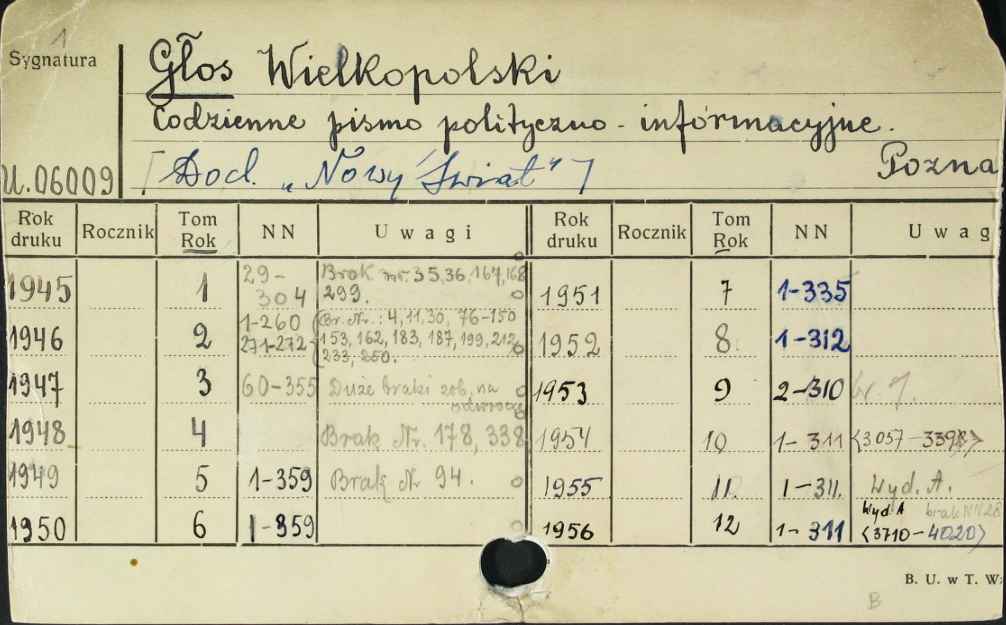 1
Sygnatura
Głos Wielkopolski
Codzienne pismo polityczno-informacyjne.
U.06009
[Dod. „Nowy Świat"]
Pozna
Rok druku Rocznik Tom Rok NN Uwagi Rok druku Rocznik Tom Rok NN Uwag
1945 1 29-304 Brak nr. 35,36,167,168 299. 1951 7 1-335
1946 2 1-260 271-272 Br. Nr.: 4,11,30, 76-150 153, 162, 183, 187, 199, 212, 233, 250. 1952 8 1-312
1947 3 60-355 Duże braki zob. na odwrocie 1953 9 2-310
1948 4 Brak Nr. 178, 338 1954 10 1-311 <3057-3398>
1949 5 1-359 Brak Nr 94. 1955 11. 1-311. Wyd. A.
1950 6 1-359 1956 12 1-311 Wyd A brak NN 28 <3710-4020>
B. U. w T. W
B